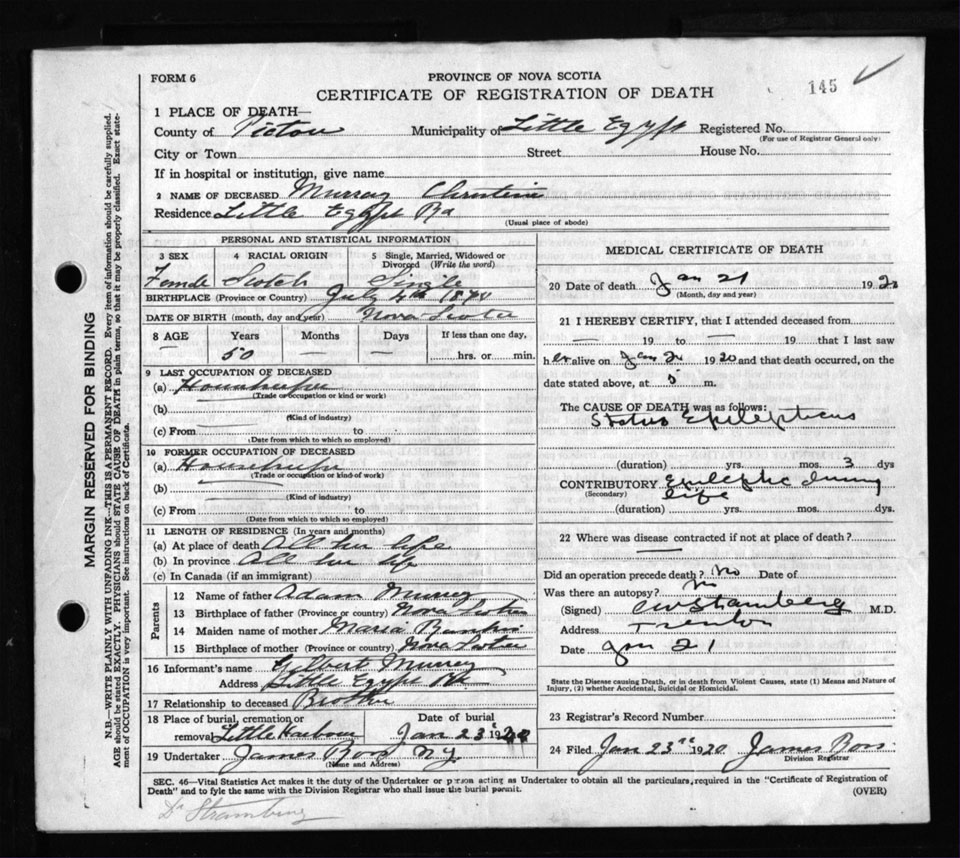 FORM 6
PROVINCE OF NOVA SCOTIA
CERTIFICATE OF REGISTRATION OF DEATH
145
1 PLACE OF DEATH—
County of Pictou Municipality of Little Egypt Registered No.
(For use of Registrar General only)
City or Town Street House No.
If in hospital or institution, give name
2 NAME OF DECEASED Murray Christine
Residence Little Egypt Rd
(Usual place of abode)
PERSONAL AND STATISTICAL INFORMATION
3 SEX 4 RACIAL ORIGIN 5 Single, Married, Widowed or Divorced (Write the word)
Female Scotch Single
BIRTHPLACE (Province or Country) July 4th
DATE OF BIRTH (month, day and year) Nova Scotia
8 AGE Years Months Days If less than one day,
— 50 — — hrs. or min.
9 LAST OCCUPATION OF DECEASED
(a) Housekeeper
(Trade or occupation or kind or work)
(b)
(Kind of industry)
(c) From to
(Date from which to which so employed)
10 FORMER OCCUPATION OF DECEASED
(a) Housekeeper
(Trade or occupation or kind of work)
(b)
(Kind of industry)
(c) From to
(Date from which to which so employed)
11 LENGTH OF RESIDENCE (In years and months)
(a) At place of death All her life
(b) In province All her life
(c) In Canada (if an immigrant)
Parents
12 Name of father Adam Murray
13 Birthplace of father (Province or country) Nova Scotia
14 Maiden name of mother Maria
15 Birthplace of mother (Province or country) Nova Scotia
16 Informant's name Gilbert Murray
Address Little Egypt Rd
17 Relationship to deceased Brother
18 Place of burial, cremation or removal Little Harbour Date of burial Jan 23 1920
19 Undertaker James Ross
(Name and Address)
MEDICAL CERTIFICATE OF DEATH
20 Date of death Jan 21 1920
(Month, day and year)
21 I HEREBY CERTIFY, that I attended deceased from
— 19 to — 19 that I last saw
her alive on Jan 21 1920 and that death occurred, on the
date stated above, at 5 m.
The CAUSE OF DEATH was as follows:
Status Epilepticus
(duration) yrs. mos. 3 dys
CONTRIBUTORY Epileptic during
(Secondary) life
(duration) yrs. mos. dys.
22 Where was disease contracted if not at place of death?
—
Did an operation precede death? No Date of
Was there an autopsy? No
(Signed) M.D.
Address Trenton
Date Jan 21
State the Disease causing Death, or in death from Violent Causes, state (1) Means and Nature of
Injury, (2) whether Accidental, Suicidal or Homicidal.
23 Registrar's Record Number
24 Filed Jan 23rd 1920 James Ross
Division Registrar
SEC. 46—Vital Statistics Act makes it the duty of the Undertaker or person acting as Undertaker to obtain all the particulars, required in the "Certificate of Registration of
Death" and to fyle the same with the Division Registrar who shall issue the burial permit.
(OVER)
MARGIN RESERVED FOR BINDING
N.B.—WRITE PLAINLY WITH UNFADING INK—THIS IS A PERMANENT RECORD. Every item of information should be carefully supplied.
AGE should be stated EXACTLY. PHYSICIANS should STATE CAUSE OF DEATH in plain terms, so that it may be properly classified. Exact statement
of OCCUPATION is very important. See instructions on back of Certificate.